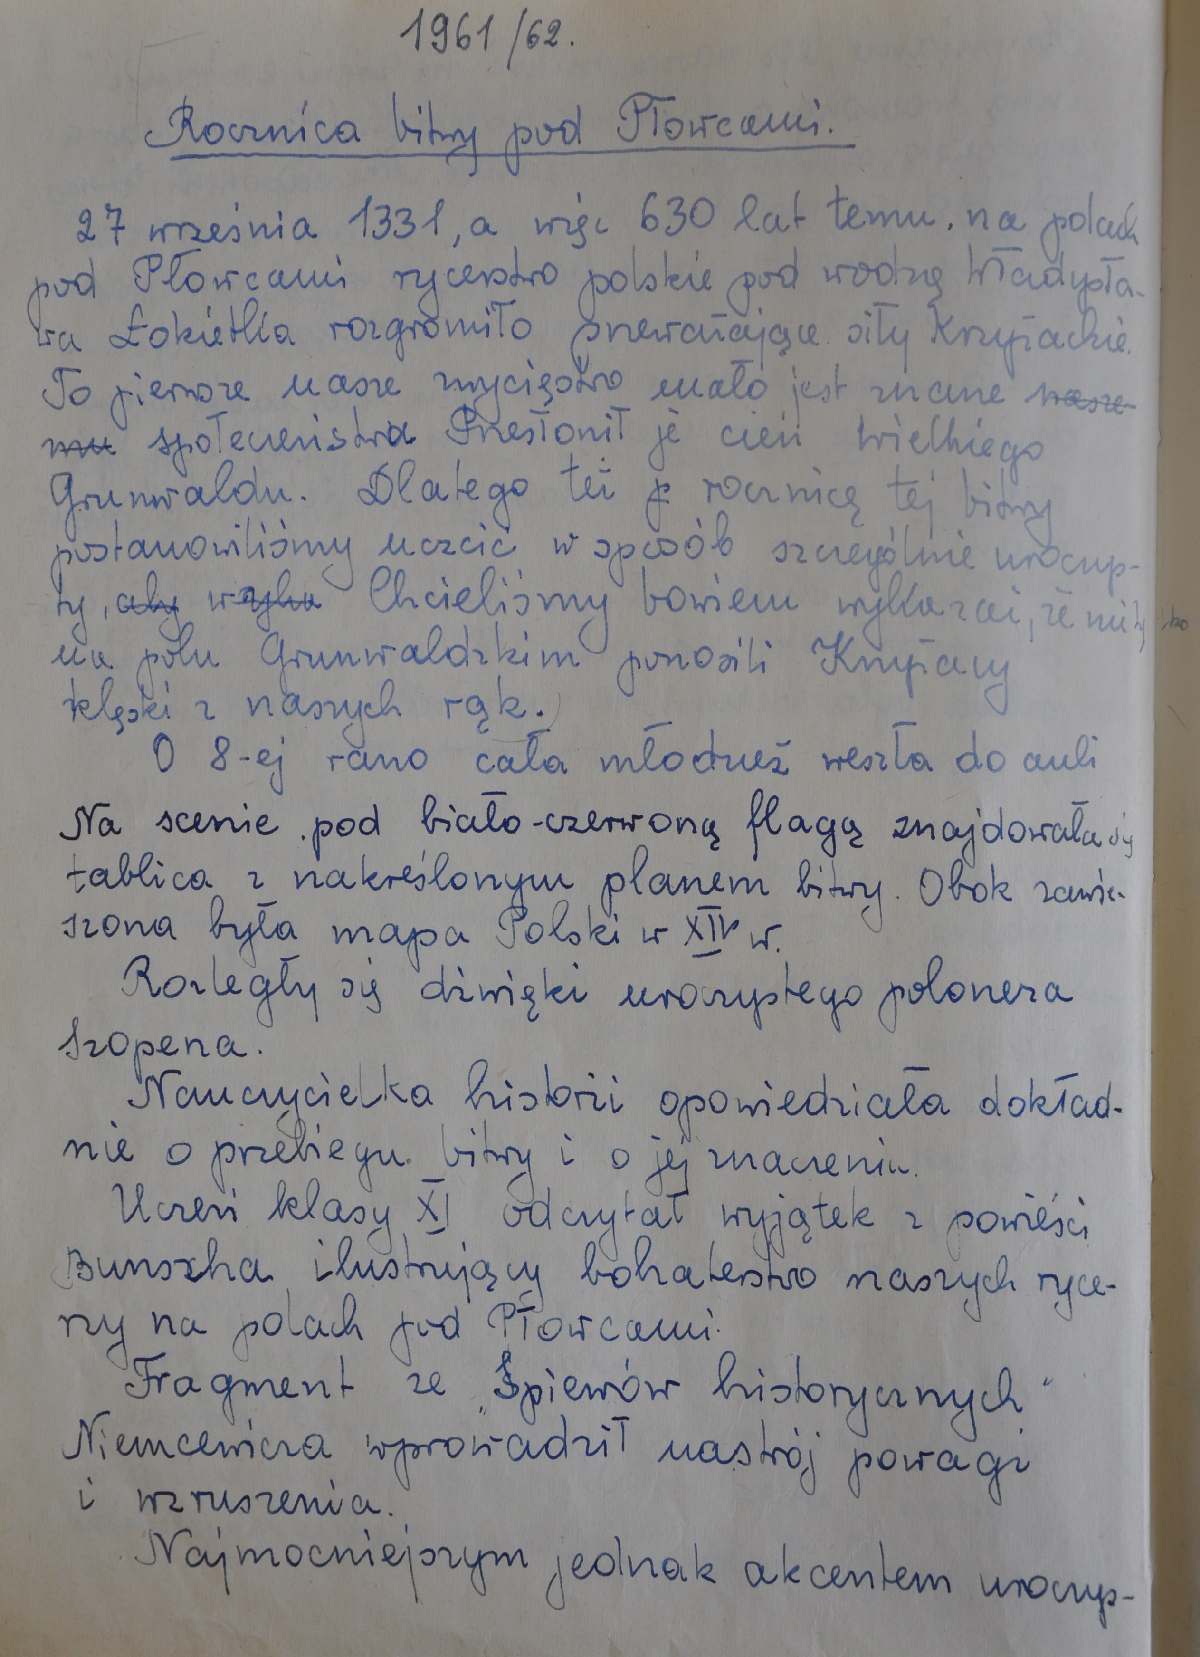 1961/62.
Rocznica bitwy pod Płowcami.
27 września 1331, a więc 630 lat temu. na polach
pod Płowcami rycerstwo polskie pod wodzą Władysła-
wa Łokietka rozgromiło przeważające siły Krzyżackie.
To pierwsze nasze zwycięstwo mało jest znane nasze-
mu społeczeństwa Przesłonił je cień wielkiego
Grunwaldu. Dlatego też rocznicę tej bitwy
postanowiliśmy uczcić w sposób szczególnie uroczys-
ty, aby Chcieliśmy bowiem wykazać, że nie tylko
na polu Grunwaldzkim ponosili Krzyżacy
klęski z naszych rąk.
O 8-ej rano cała młodzież weszła do auli
Na scenie pod biało-czerwoną flagą znajdowała się
tablica z nakreślonym planem bitwy. Obok zawie-
szona była mapa Polski w XIV w.
Rozległy się dźwięki uroczystego poloneza
Szopena.
Nauczycielka historii opowiedziała dokład-
nie o przebiegu bitwy i o jej znaczeniu.
Uczeń klasy XI odczytał wyjątek z powieści
Bunscha ilustrujący bohaterstwo naszych ryce-
rzy na polach pod Płowcami.
Fragment ze "Śpiewów historycznych"
Niemcewicza wprowadził nastrój powagi
i wzruszenia.
Najmocniejszym jednak akcentem uroczys-